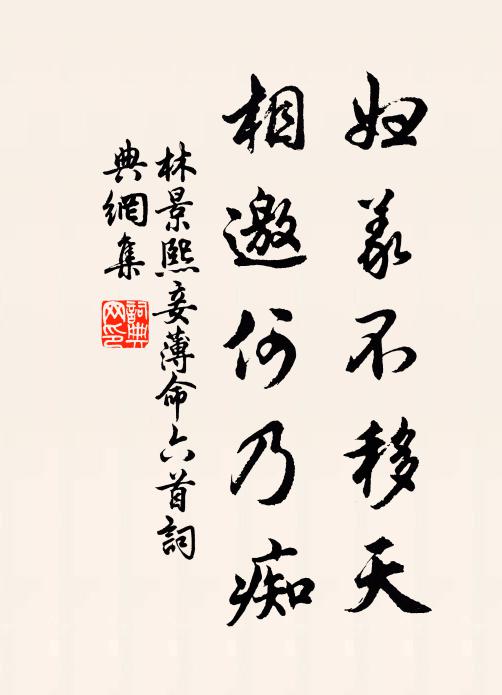 妇义不移天
相邀何乃痴
林景熙妾薄命六首詞
典網集
詞典網印